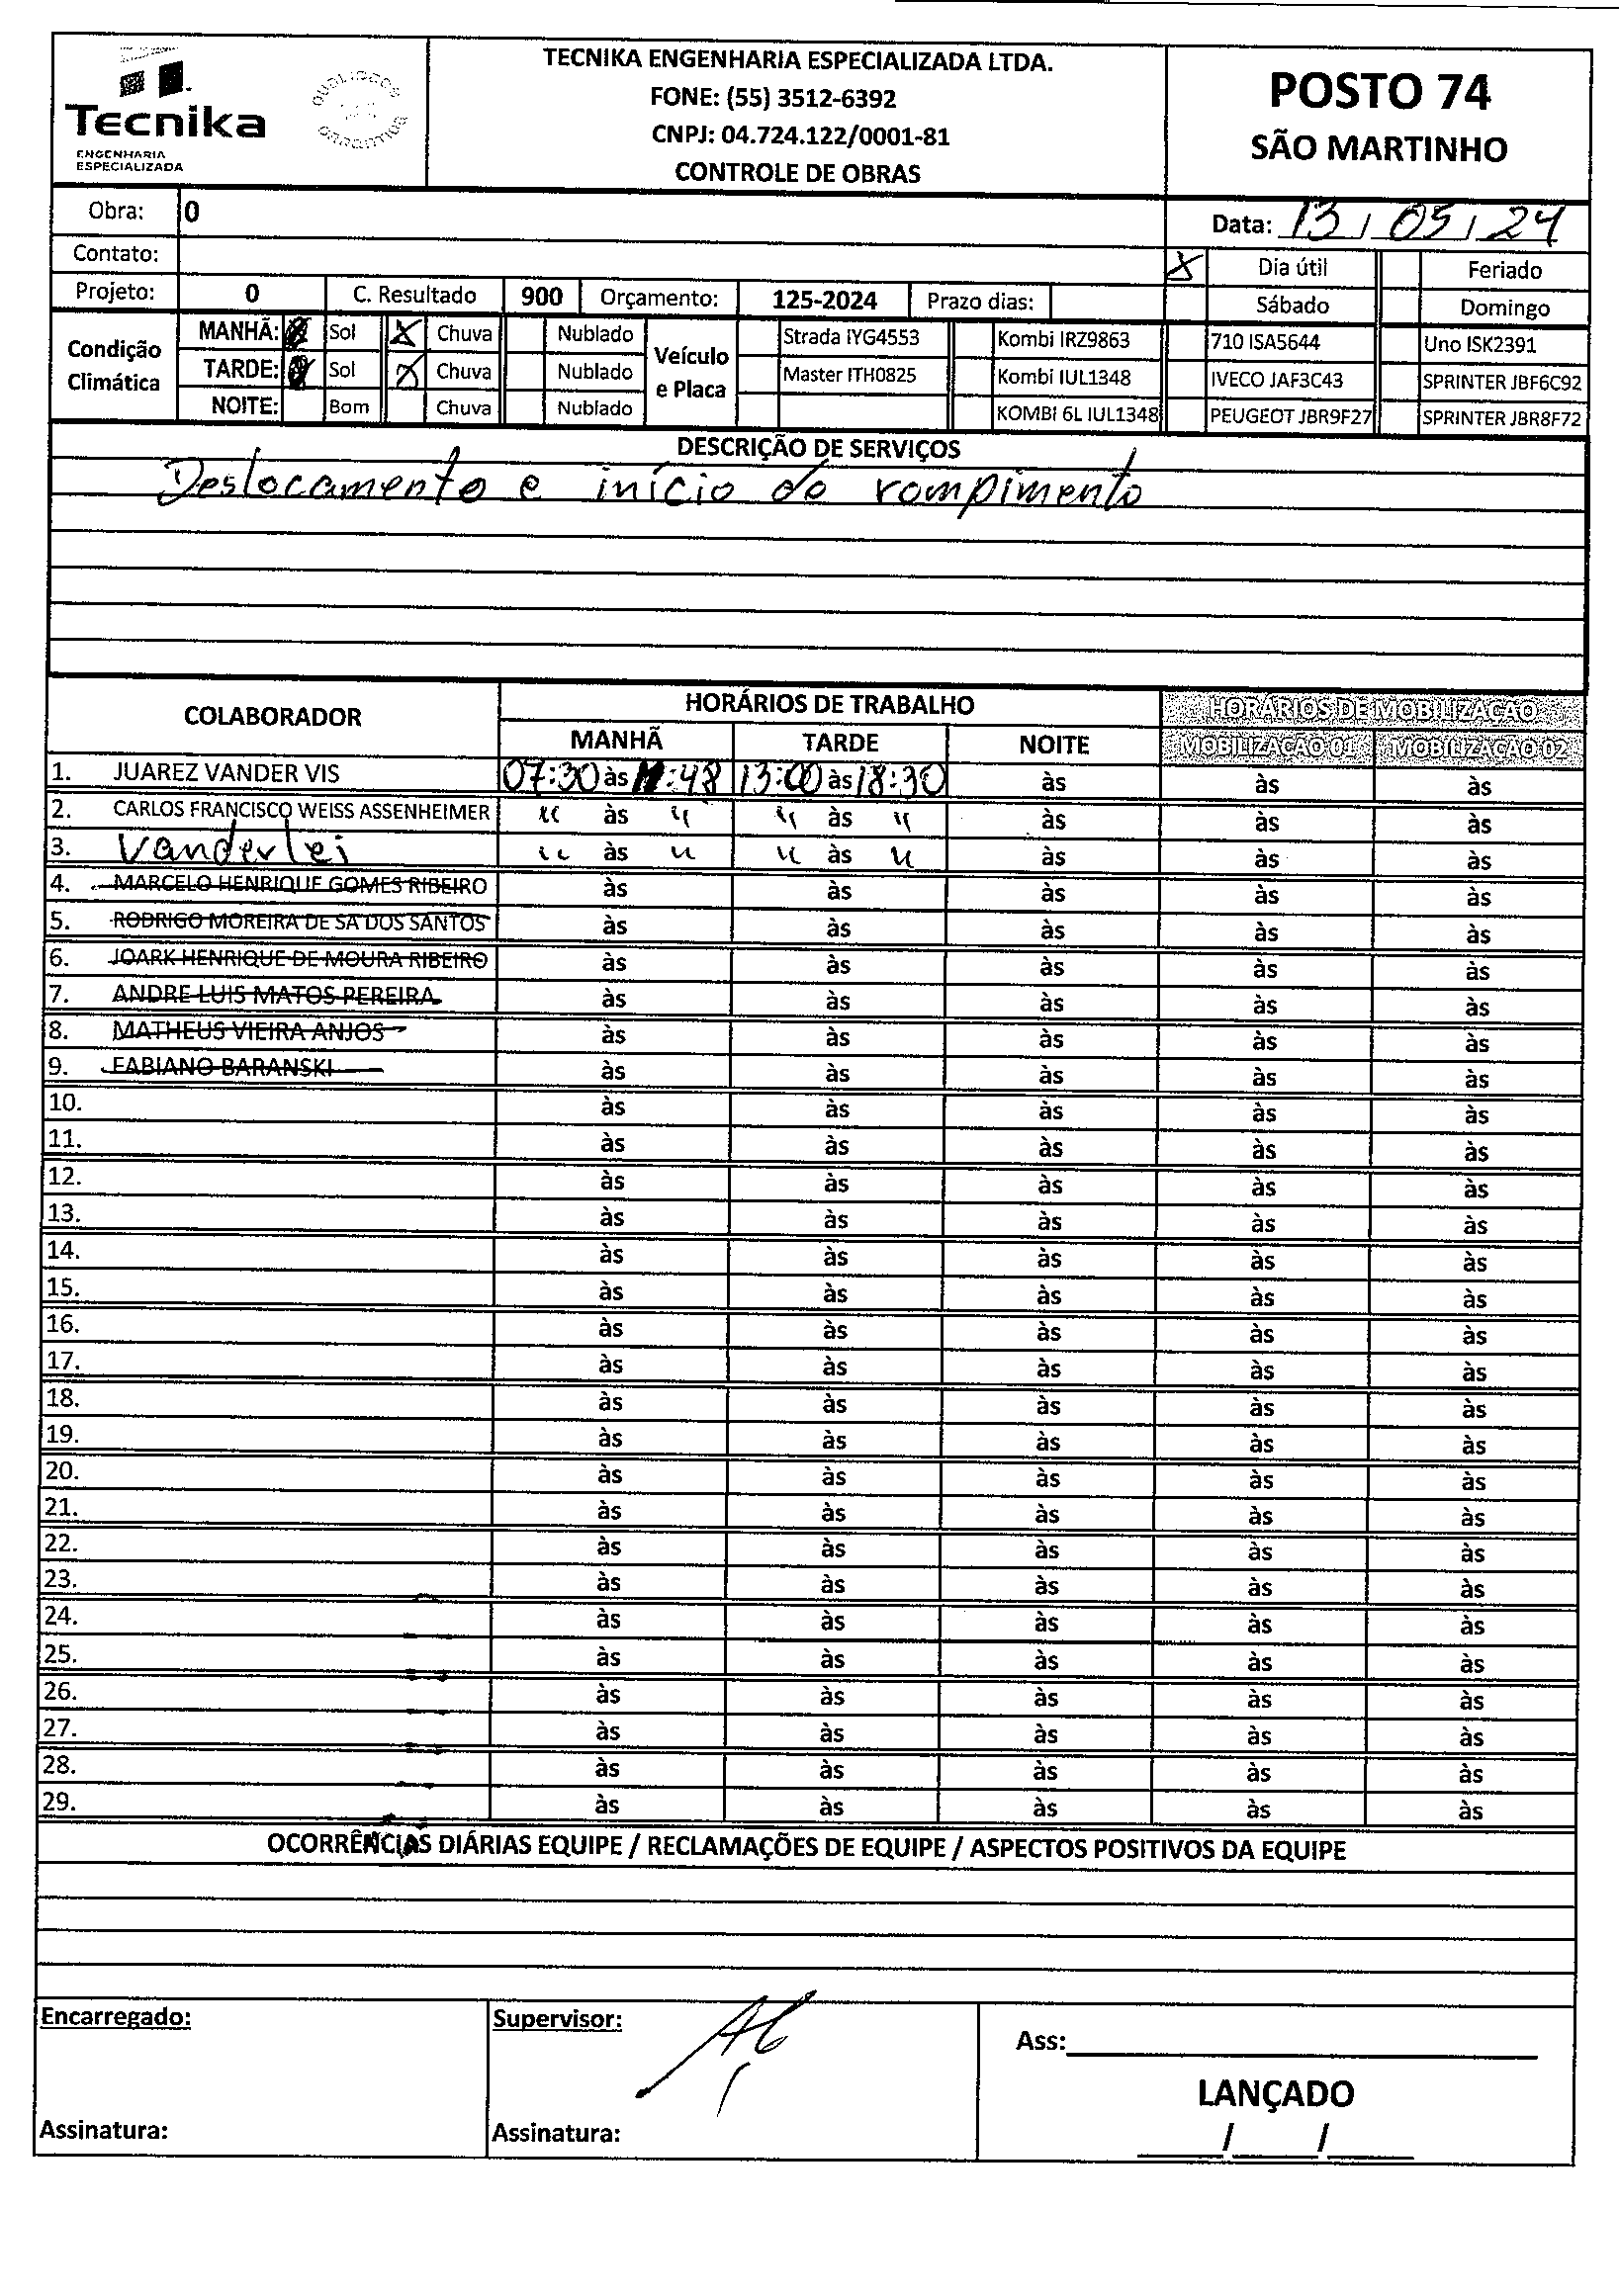 Tecnika
ENGENHARIA
ESPECIALIZADA
TECNIKA ENGENHARIA ESPECIALIZADA LTDA.
FONE: (55) 3512-6392
CNPJ: 04.724.122/0001-81
CONTROLE DE OBRAS
POSTO 74
SÃO MARTINHO
Obra: 0
Data: 13 / 05 / 24
Contato:
X Dia útil Feriado
Projeto: 0 C. Resultado 900 Orçamento: 125-2024 Prazo dias: Sábado Domingo
Condição Climática
MANHÃ: Sol X Chuva Nublado
TARDE: Sol X Chuva Nublado
NOITE: Bom Chuva Nublado
Veículo e Placa
Strada IYG4553 Kombi IRZ9863 710 ISA5644 Uno ISK2391
Master ITH0825 Kombi IUL1348 IVECO JAF3C43 SPRINTER JBF6C92
KOMBI 6L IUL1348 PEUGEOT JBR9F27 SPRINTER JBR8F72
DESCRIÇÃO DE SERVIÇOS
Deslocamento e início do rompimento
COLABORADOR HORÁRIOS DE TRABALHO HORÁRIOS DE MOBILIZAÇÃO
MANHÃ TARDE NOITE MOBILIZAÇÃO 01 MOBILIZAÇÃO 02
1. JUAREZ VANDER VIS 07:30 às 11:48 13:00 às 18:30 às às às
2. CARLOS FRANCISCO WEISS ASSENHEIMER " às " " às " às às às
3. Vanderlei " às " " às " às às às
4. MARCELO HENRIQUE GOMES RIBEIRO às às às às às
5. RODRIGO MOREIRA DE SA DOS SANTOS às às às às às
6. JOARK HENRIQUE DE MOURA RIBEIRO às às às às às
7. ANDRE LUIS MATOS PEREIRA às às às às às
8. MATHEUS VIEIRA ANJOS às às às às às
9. FABIANO BARANSKI às às às às às
10. às às às às às
11. às às às às às
12. às às às às às
13. às às às às às
14. às às às às às
15. às às às às às
16. às às às às às
17. às às às às às
18. às às às às às
19. às às às às às
20. às às às às às
21. às às às às às
22. às às às às às
23. às às às às às
24. às às às às às
25. às às às às às
26. às às às às às
27. às às às às às
28. às às às às às
29. às às às às às
OCORRÊNCIAS DIÁRIAS EQUIPE / RECLAMAÇÕES DE EQUIPE / ASPECTOS POSITIVOS DA EQUIPE
Encarregado: Supervisor:
Ass:
LANÇADO
Assinatura: Assinatura: / /